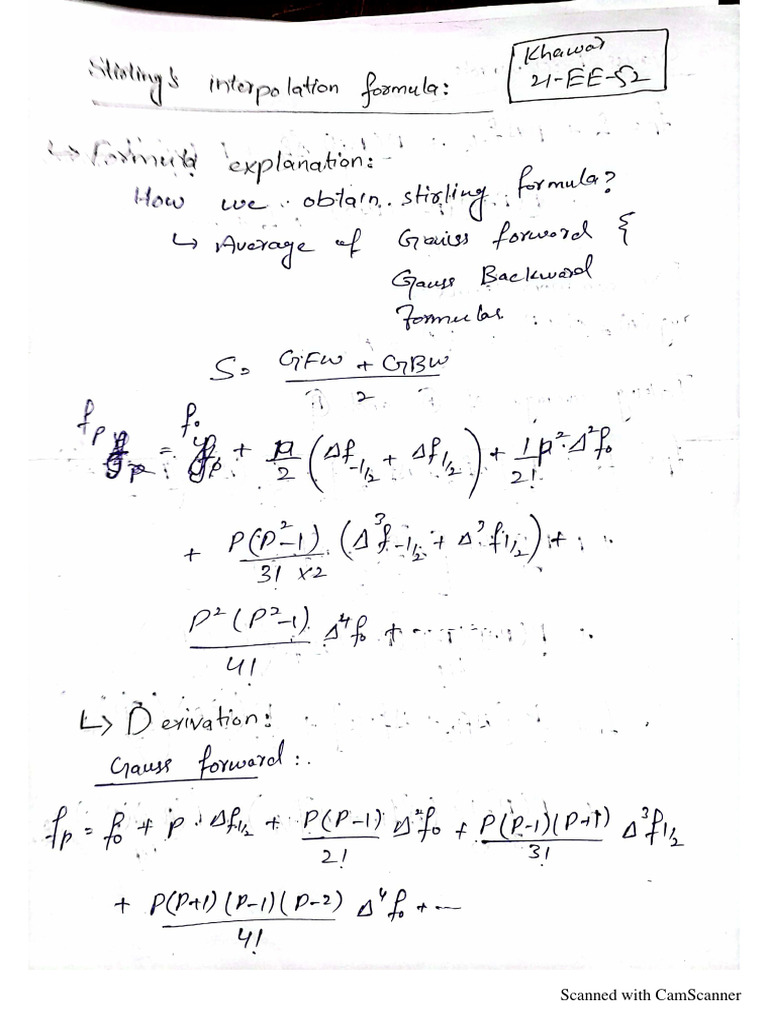 Stirling's interpolation formula:
Khawar
21-EE-52
↳ Formula explanation:-
How we obtain stirling formula?
↳ Average of Gauss forword &
Gauss Backward
Formulas
S = (GFW + GBW)/2
fp = f₀ + p/2 (Δf₋₁/₂ + Δf₁/₂) + 1/2! p²·Δ²f₀
+ P(P²-1)/(3! x2) (Δ³f₋₁/₂ + Δ³f₁/₂) + ..
P²(P²-1)/4! Δ⁴f₀ + ........
↳ Derivation:
Gauss forword :.
fp = f₀ + p·Δf₁/₂ + P(P-1)/2! Δ²f₀ + P(P-1)(P+1)/3! Δ³f₁/₂
+ P(P+1)(P-1)(P-2)/4! Δ⁴f₀ + ---
Scanned with CamScanner